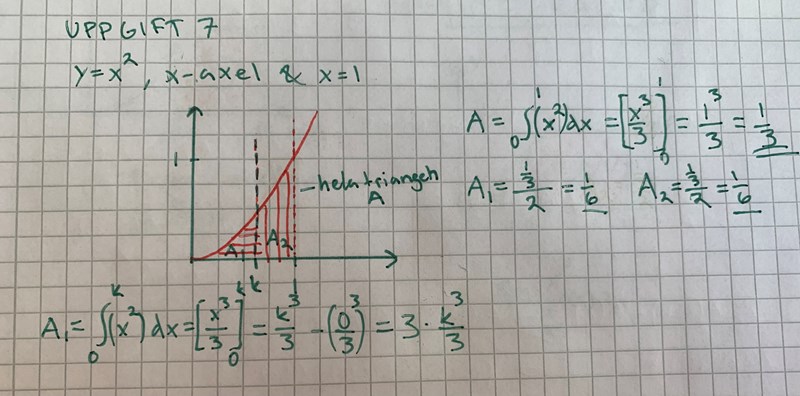 UPPGIFT 7
y=x², x-axel & x=1
A = ₀∫¹(x²)dx = [x³/3]₀¹ = 1³/3 = 1/3
A₁ = (1/3)/2 = 1/6  A₂ = (1/3)/2 = 1/6
1
hela triangeln
A
A₁ A₂
k 1
A₁ = ₀∫ᵏ(x²)dx = [x³/3]₀ᵏ = k³/3 - (0³/3) = 3·k³/3